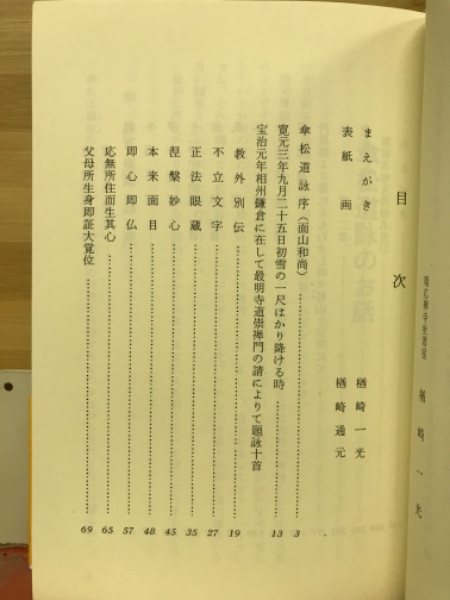 瑞応寺専門僧堂堂長 楢崎一光
目次
まえがき 楢崎一光
表紙画 楢崎通元
傘松道詠序(面山和尚)……3
寛元三年九月二十五日初雪の一尺ばかり降ける時……13
宝治元年相州鎌倉に在して最明寺道崇禅門の請によりて題詠十首
教外別伝……19
不立文字……27
正法眼蔵……35
涅槃妙心……45
本来面目……48
即心即仏……57
応無所住而生其心……65
父母所生身即証大覚位……69